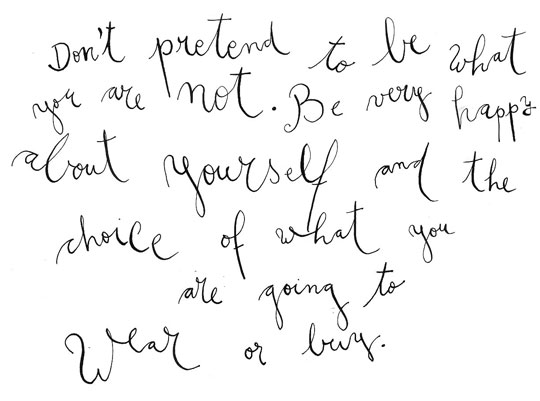 Don't pretend to be what
you are not. Be very happy
about yourself and the
choice of what you
are going to
Wear or buy.